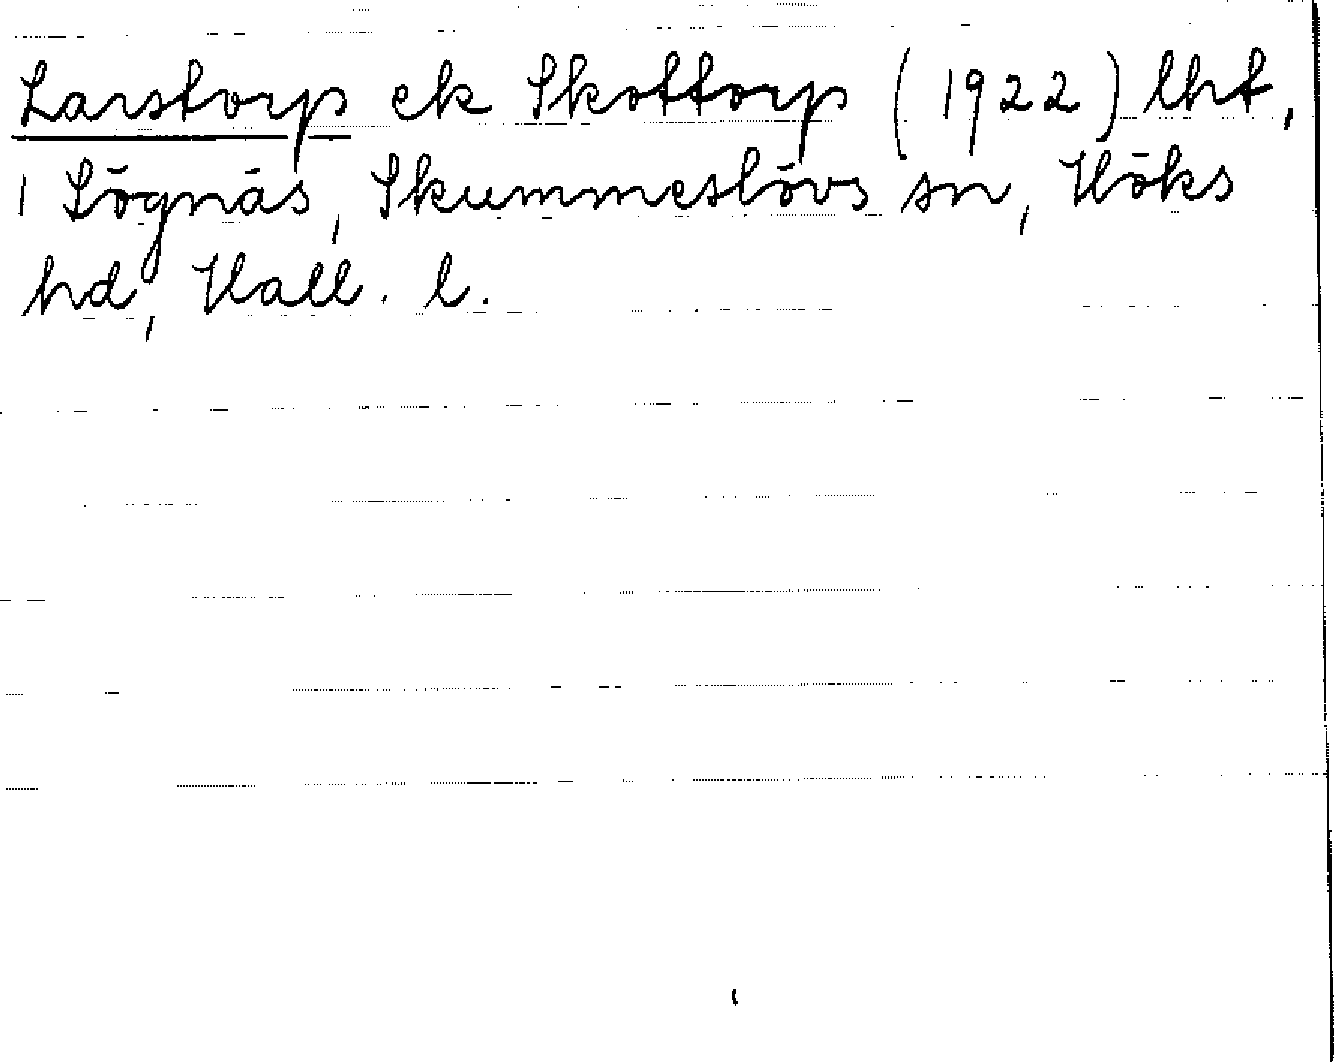 Larstorp ek Skottorp (1922) lht,
i Lögnäs, Skummeslövs sn, Höks
hd, Hall. l.